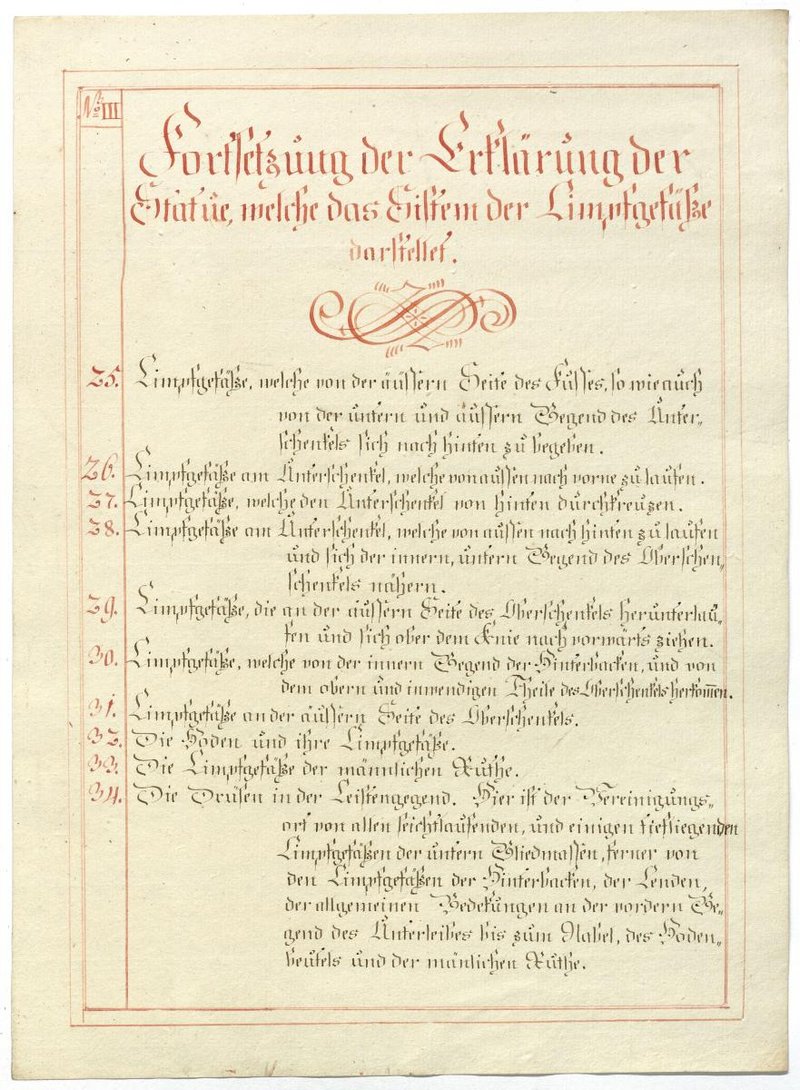 No III
Fortsetzung der Erklärung der
Statue, welche das Sistem der Limpfgefäße
darstellet.
25. Limpfgefäße, welche von der äussern Seite des Fusses, so wie auch
von der untern und äussern Gegend des Unter-
schenkels sich nach hinten zu begeben.
26. Limpfgefäße am Unterschenkel, welche von aussen nach vorne zu laufen.
27. Limpfgefäße, welche den Unterschenkel von hinten durchkreuzen.
28. Limpfgefäße am Unterschenkel, welche von aussen nach hinten zu laufen
und sich der innern, untern Gegend des Oberschen„
schenkels nähern.
29. Limpfgefäße, die an der äussern Seite des Oberschenkels herunterlau„
fen und sich ober dem Knie nach vorwärts ziehen.
30. Limpfgefäße, welche von der innern Gegend der Hinterbacken, und von
dem obern und inwendigen Theile des Oberschenkels herkom̅en.
31. Limpfgefäße an der äussern Seite des Oberschenkels.
32. Die Hoden und ihre Limpfgefäße.
33. Die Limpfgefäße der männlichen Ruthe.
34. Die Drüsen in der Leistengegend. Hier ist der Vereinigungs„
ort von allen seichtlaufenden, und einigen tiefliegenden
Limpfgefäßen der untern Gliedmassen, ferner von
den Limpfgefäßen der Hinterbacken, der Lenden,
der allgemeinen Bedekungen an der vordern Ge„
gend des Unterleibes bis zum Nabel, des Hoden„
beutels und der mänlichen Ruthe.